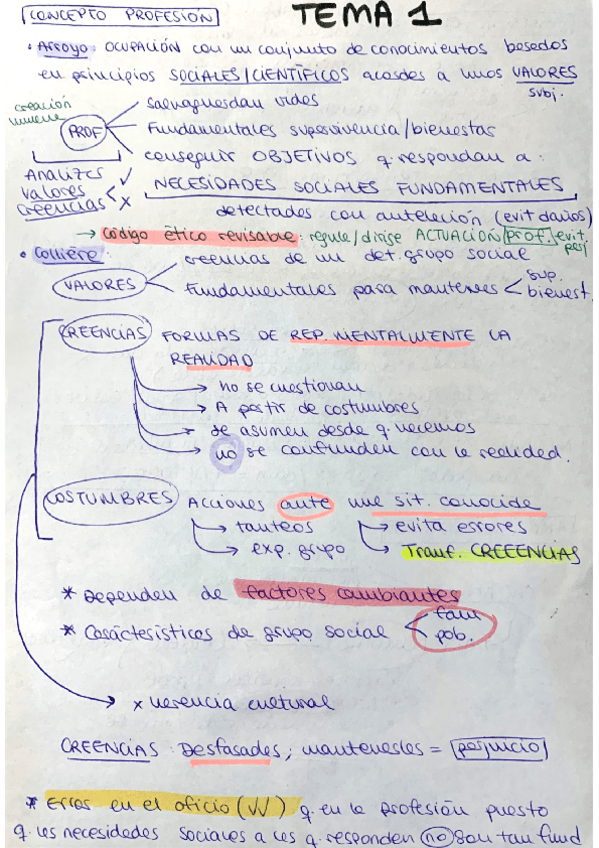 CONCEPTO PROFESIÓN TEMA 1
· Arroyo: OCUPACIÓN con un conjunto de conocimientos basados
en principios SOCIALES/CIENTÍFICOS acordes a unos VALORES
subj.
creación
Salvaguardan vidas
PROF
Fundamentales supervivencia/bienestar
conseguir OBJETIVOS q respondan a:
Analizar
valores
creencias
✓
x
NECESIDADES SOCIALES FUNDAMENTALES
detectadas con antelación (evit daños)
→ Código ético revisable: regule/dirige ACTUACIÓN prof. evit.
perj
· Collière:
creencias de un det. grupo social
VALORES
Fundamentales para mantener < sup.
bienest.
CREENCIAS FORMAS DE REP. MENTALMENTE LA
REALIDAD
→ no se cuestionan
→ A partir de costumbres
→ se asumen desde q nacemos
→ no se confunden con la realidad.
COSTUMBRES ACCIONES ante una sit. conocida
→ tanteos → evita errores
→ exp. grupo → Tranf. CREEENCIAS
* Dependen de factores cambiantes
* Carácterísticas de grupo social < fam
pob.
x herencia cultural
CREENCIAS: Desfasadas, mantenerlas = perjuicio
* Error en el oficio (VV) q en la profesión puesto
q las necesidades sociales a las q responden no son tan fund